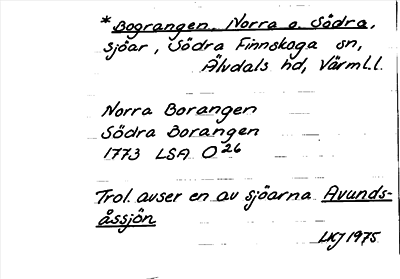 * Bograngen. Norra o. Södra,
sjöar, Södra Finnskoga sn,
Älvdals hd, Värml.l.
Norra Borangen
Södra Borangen
1773 LSA O 26
Trol. avser en av sjöarna Avunds-
åssjön
LKJ 1975